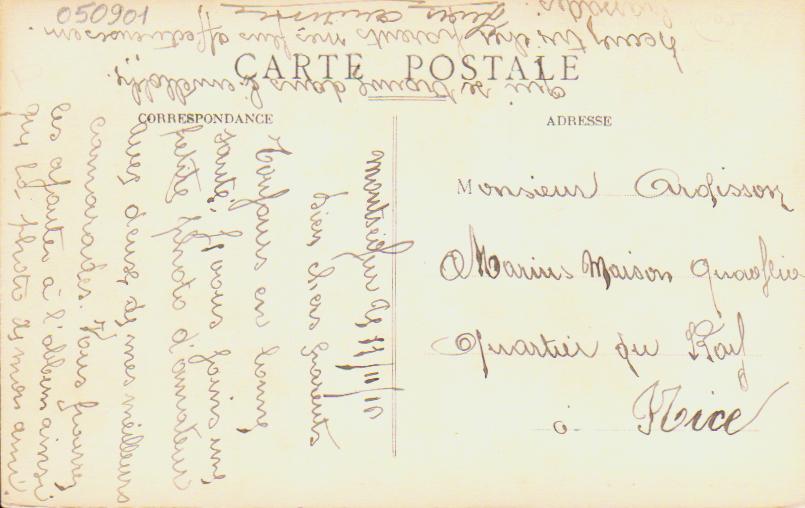 050901
CARTE POSTALE
CORRESPONDANCE
ADRESSE
Monsieur Ardisson
Marius Maison Quaglia
Quartier du Ray
à Nice
le 11/11/10
Bien chers parents
Toujours en bonne
santé. Je vous joins une
petite photo d'amateur
avec deux de mes meilleurs
camarades. Vous pourrez
les ajouter à l'album ainsi
que la photo de mon ami
qui se trouve dans l'enveloppe.
Recevez très chers parents mes plus affectueuses